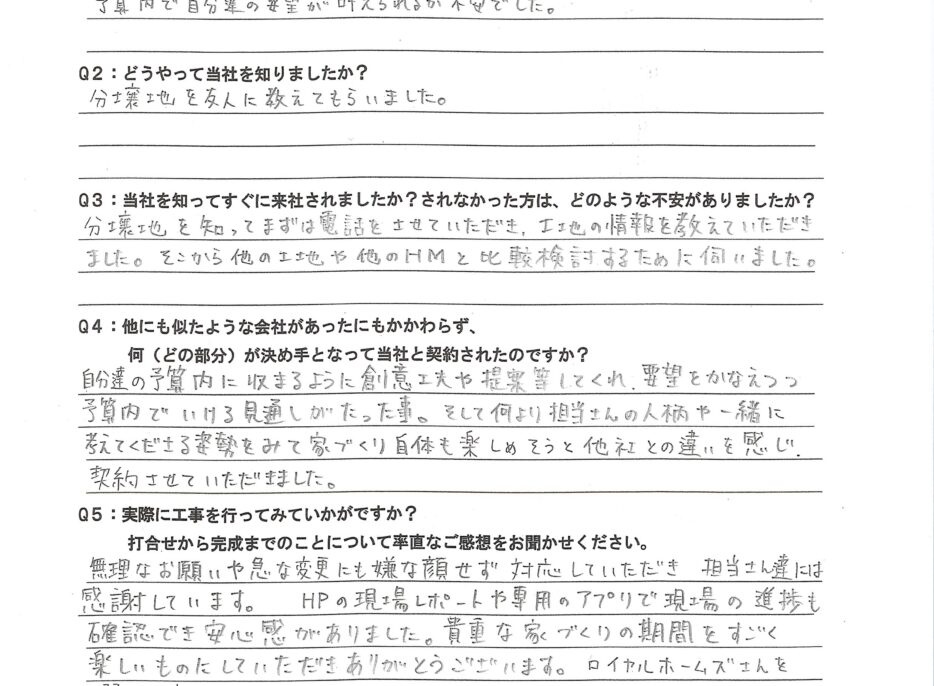 予算内で自分達の要望が叶えられるか不安でした。
Q2：どうやって当社を知りましたか？
分壌地を友人に教えてもらいました。
Q3：当社を知ってすぐに来社されましたか？されなかった方は、どのような不安がありましたか？
分壌地を知ってまずは電話をさせていただき、土地の情報を教えていただき
ました。そこから他の土地や他のHMと比較検討するために伺いました。
Q4：他にも似たような会社があったにもかかわらず、
何（どの部分）が決め手となって当社と契約されたのですか？
自分達の予算内に収まるように創意工夫や提案等してくれ、要望をかなえつつ
予算内でいける見通しがたった事。そして何より担当さんの人柄や一緒に
考えてくださる姿勢をみて家づくり自体も楽しめそうと他社との違いを感じ、
契約させていただきました。
Q5：実際に工事を行ってみていかがですか？
打合せから完成までのことについて率直なご感想をお聞かせください。
無理なお願いや急な変更にも嫌な顔せず対応していただき 担当さん達には
感謝しています。 HPの現場レポートや専用のアプリで現場の進捗も
確認でき安心感がありました。貴重な家づくりの期間をすごく
楽しいものにしていただきありがとうございます。 ロイヤルホームズさんを